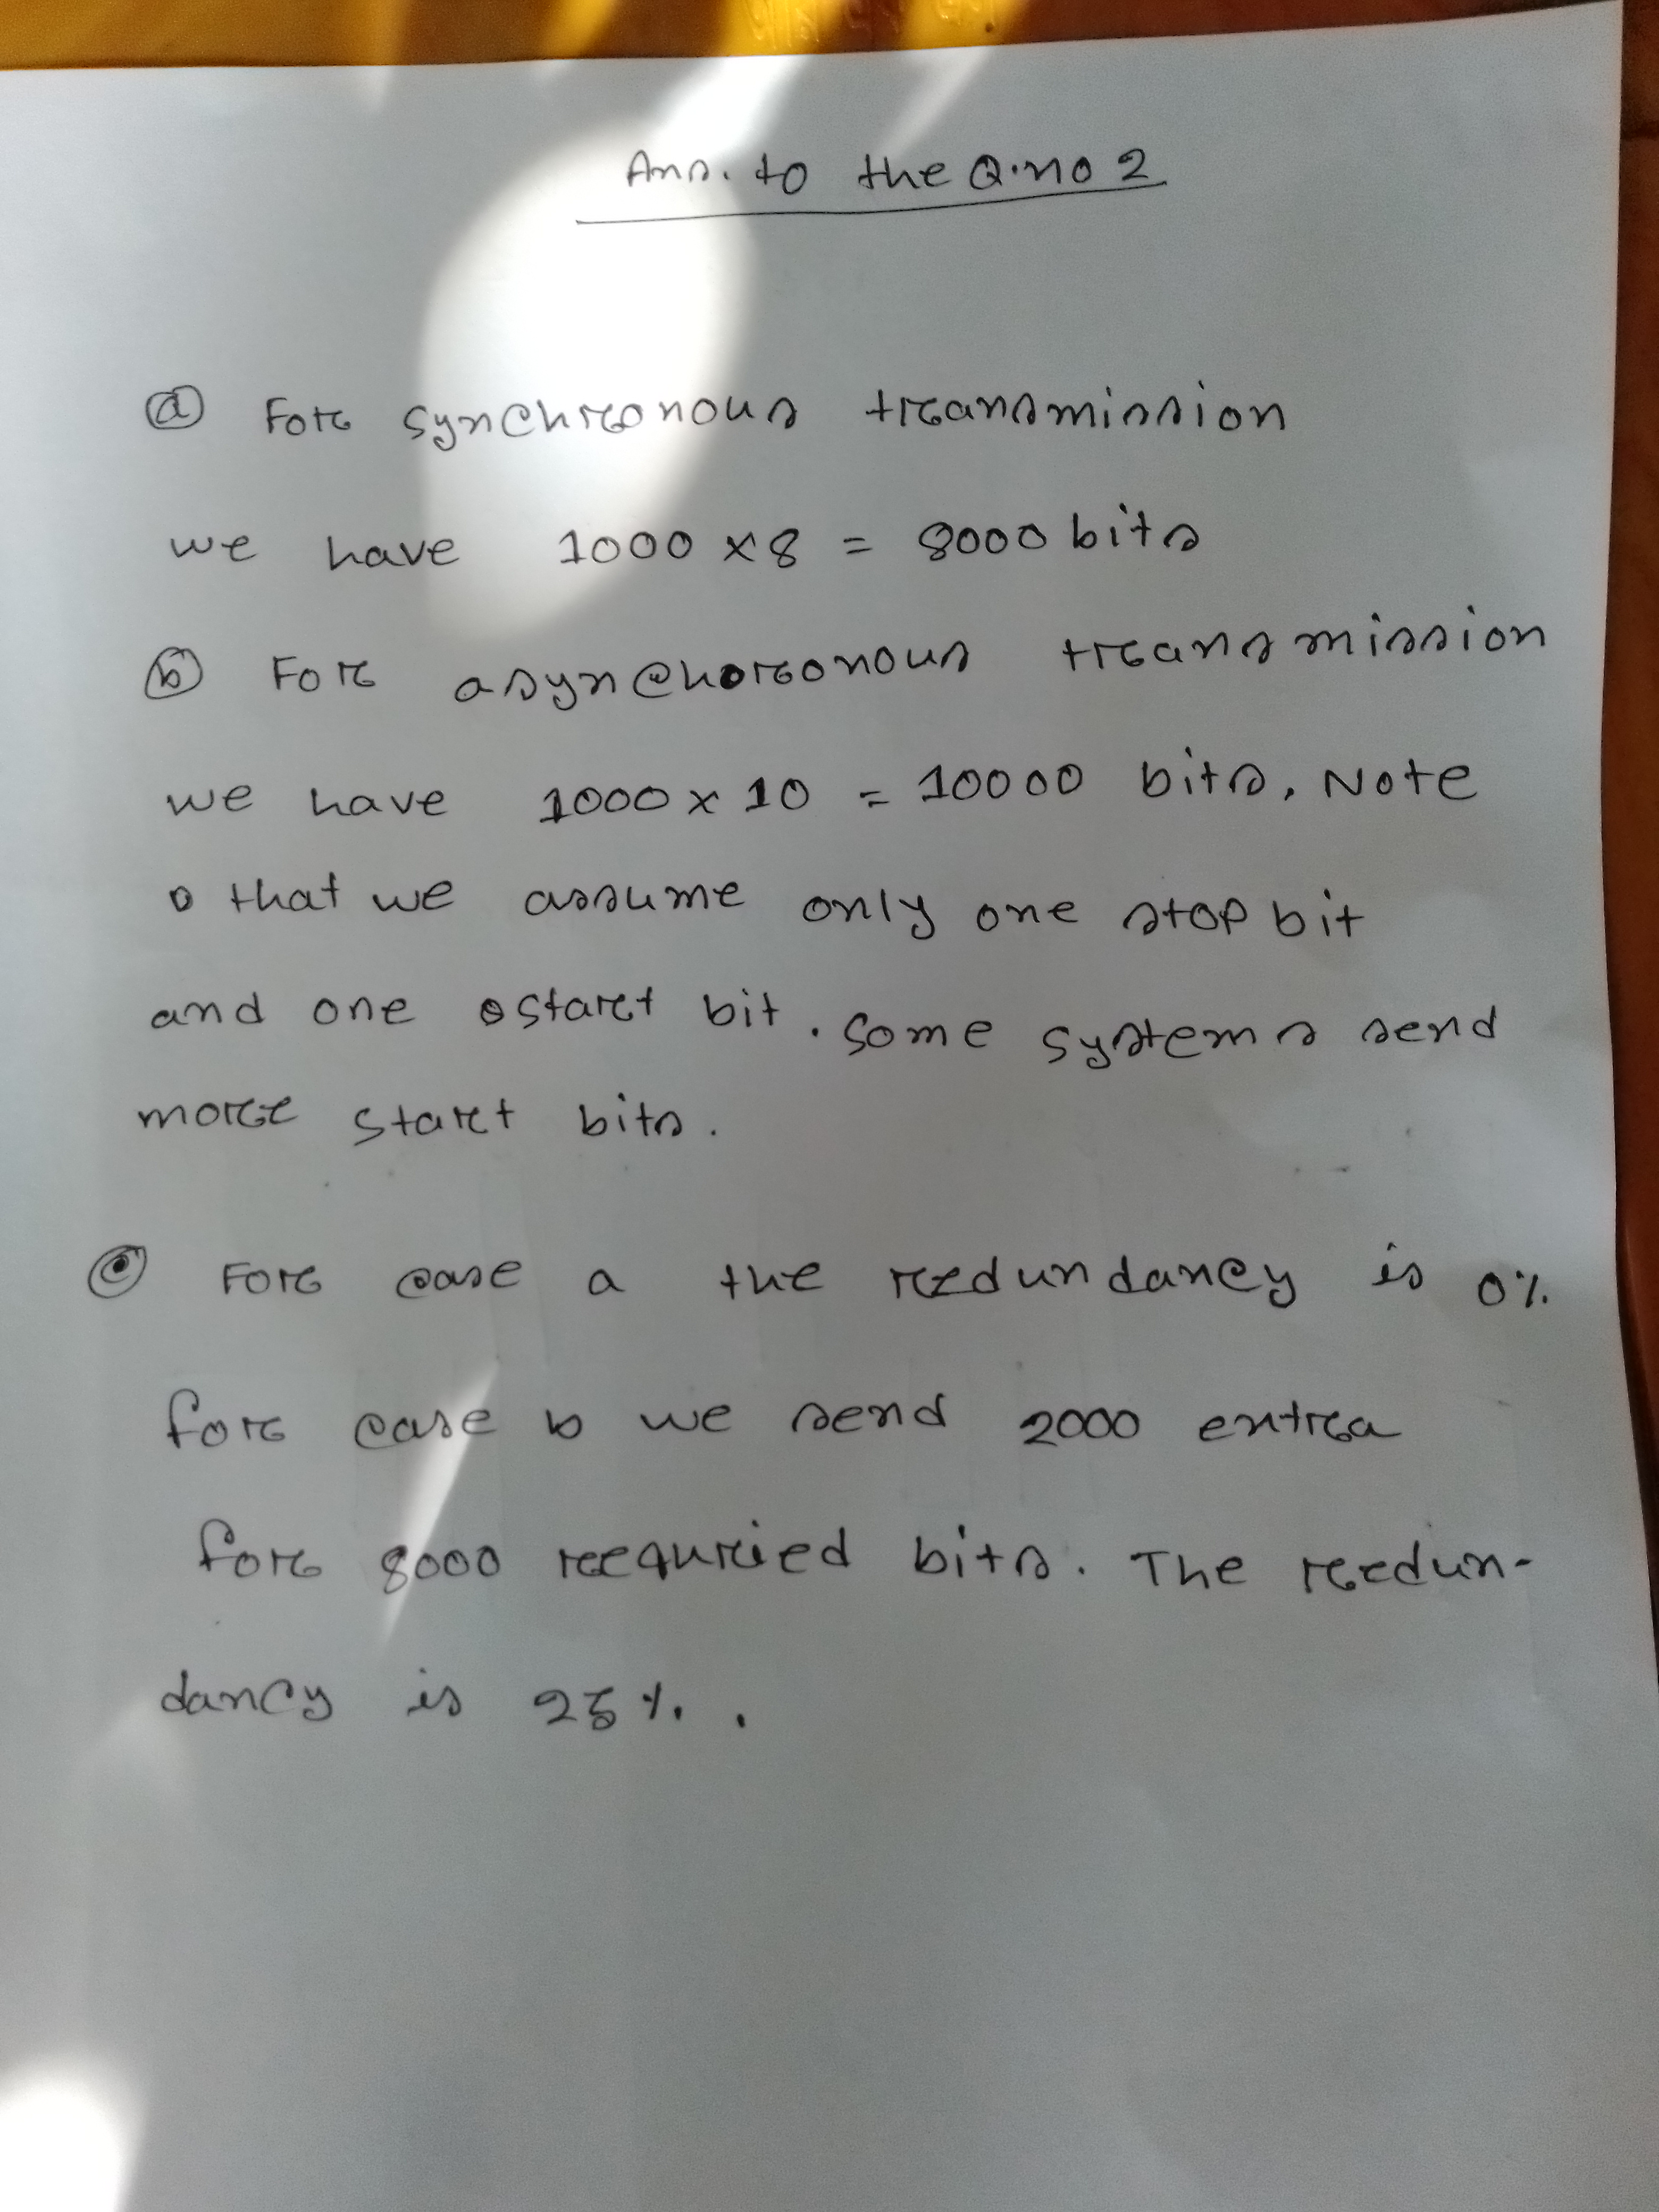 Ans. to the Q.no 2
ⓐ For synchronous transmission
we have 1000 x 8 = 8000 bits
ⓑ For asynchoronous transmission
we have 1000 x 10 = 10000 bits. Note
that we assume only one stop bit
and one start bit. Some systems send
more start bits.
ⓒ For case a the redundancy is 0%
for case b we send 2000 extra
for 8000 requried bits. The redun-
dancy is 25%.